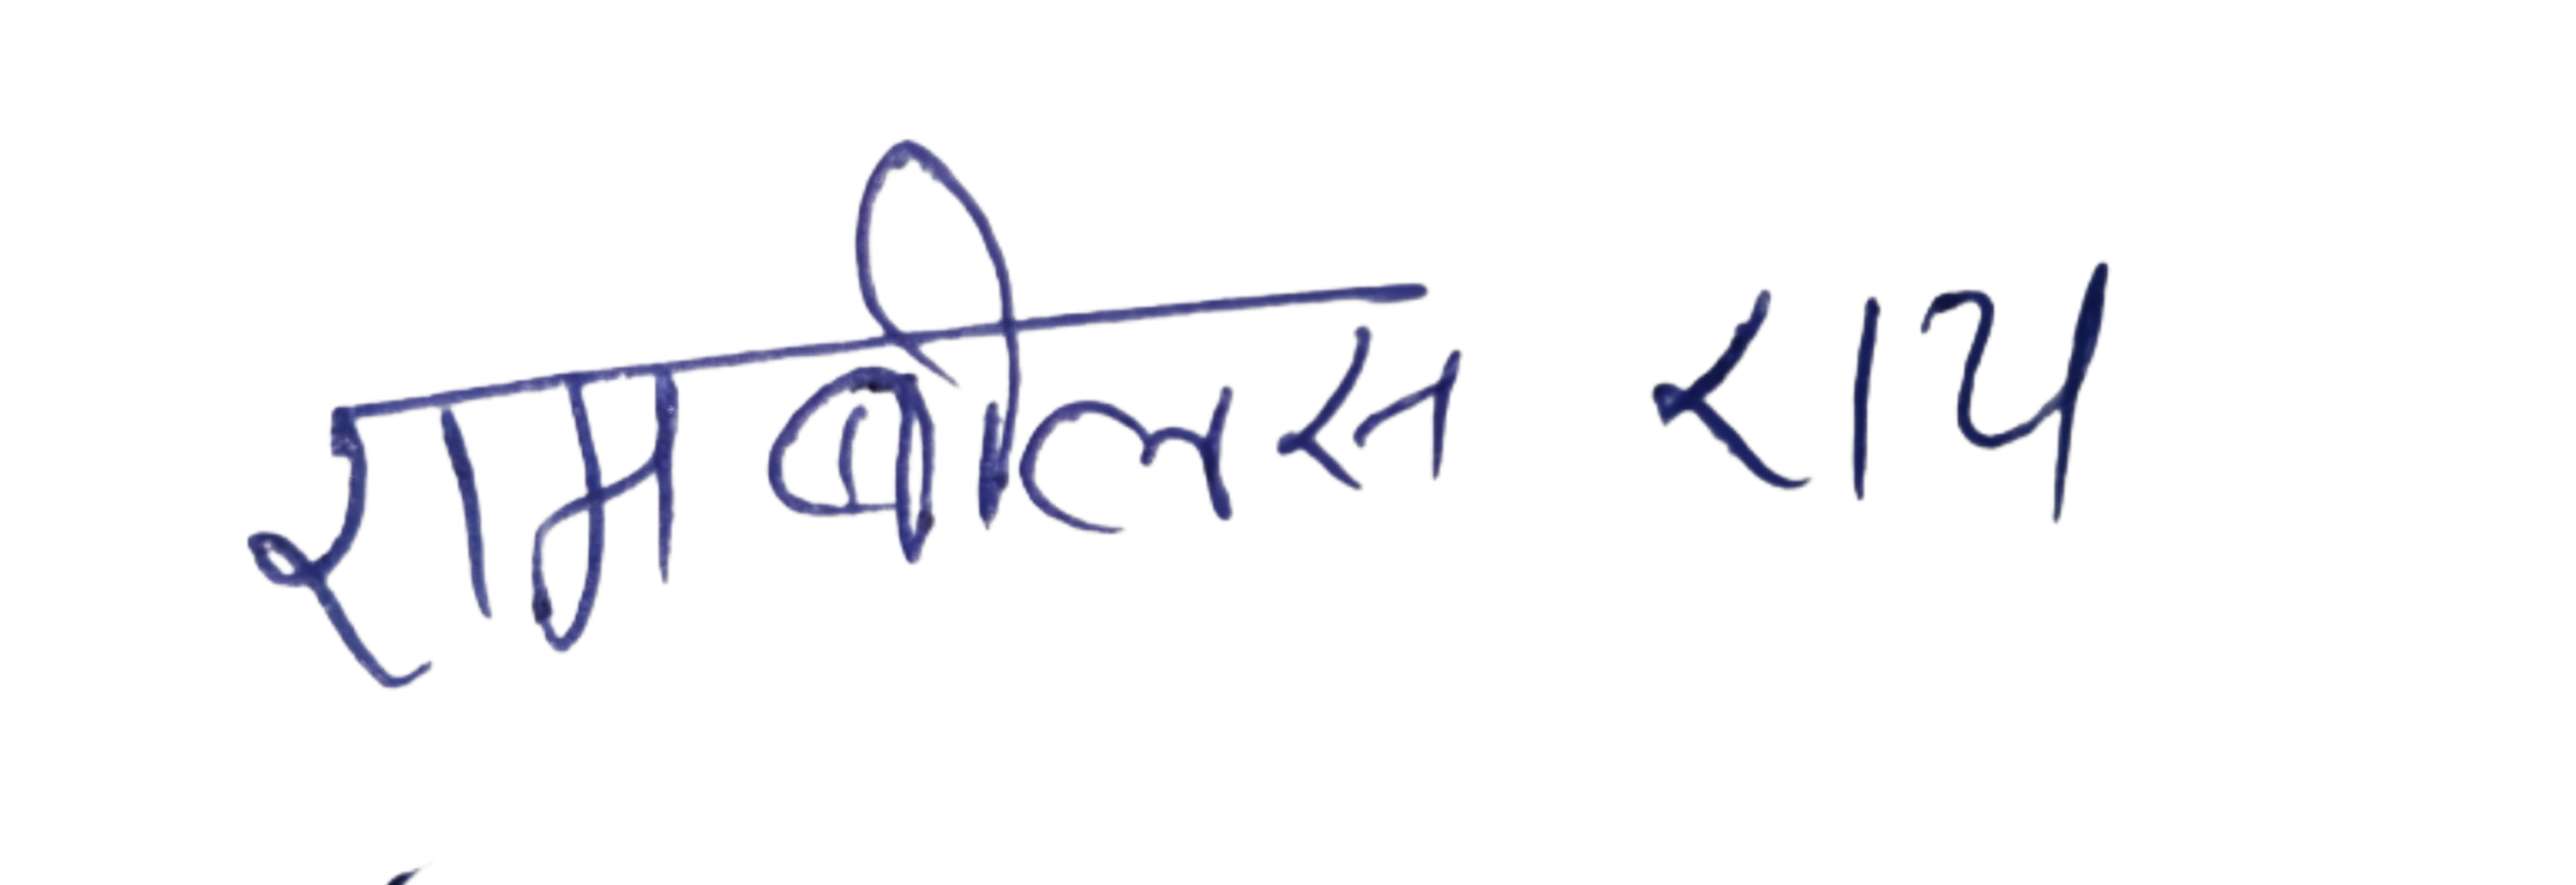 रामबीलस राय